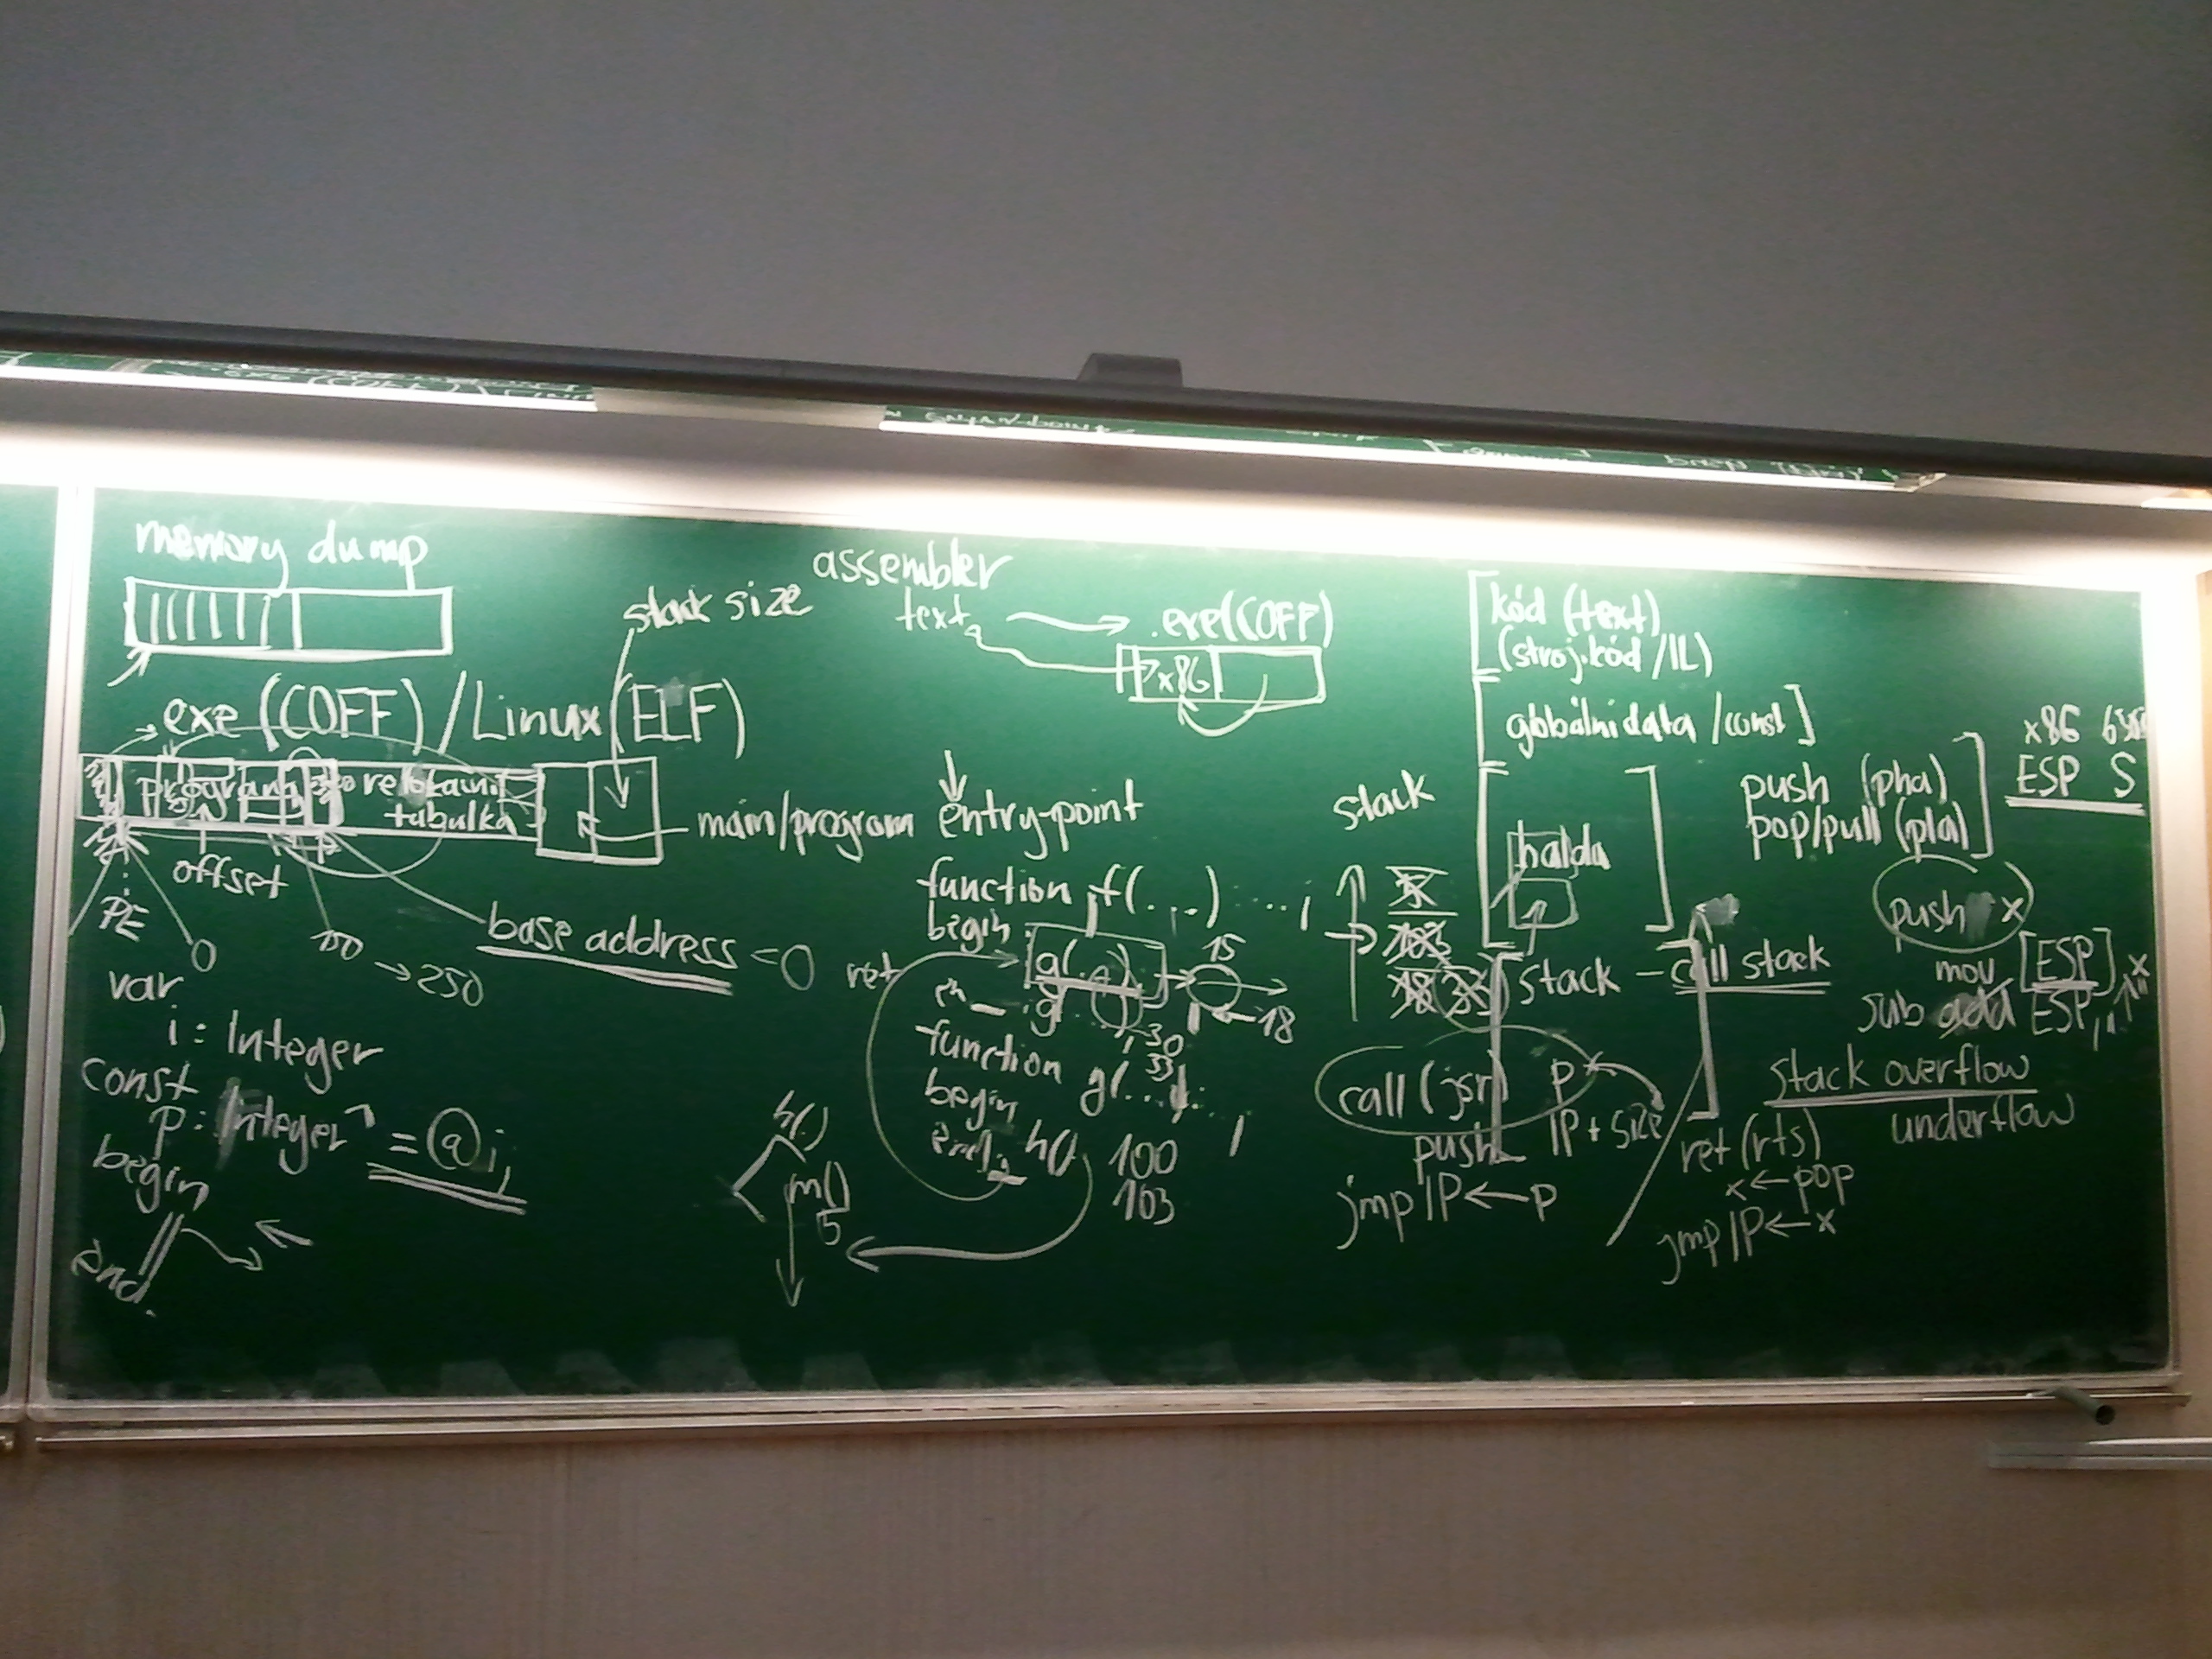 memory dump
exe (COFF) / Linux (ELF)
stack size
program
relokační
tabulka
main/program
offset
PE
0
150
→ 250
base address = 0
var
i : Integer
const
p : Integer^ = @i;
begin
end.
assembler
text
.exe (COFF)
x86
entry-point
function f(...) ... ;
begin
g(..)
15
ret
g
18
30
33
function g(...);
begin
end; h() 100
103
h()
m()
5
stack
5
103
18 33
call (jsr) p
push IP + size
jmp IP ← p
kód (text)
(stroj.kód / IL)
globální data / const
halda
stack - call stack
ret (rts)
x ← pop
jmp IP ← x
push (pha)
pop/pull (pla)
x86
ESP S
push x
mov [ESP], x
sub add ESP, "1"
stack overflow
underflow